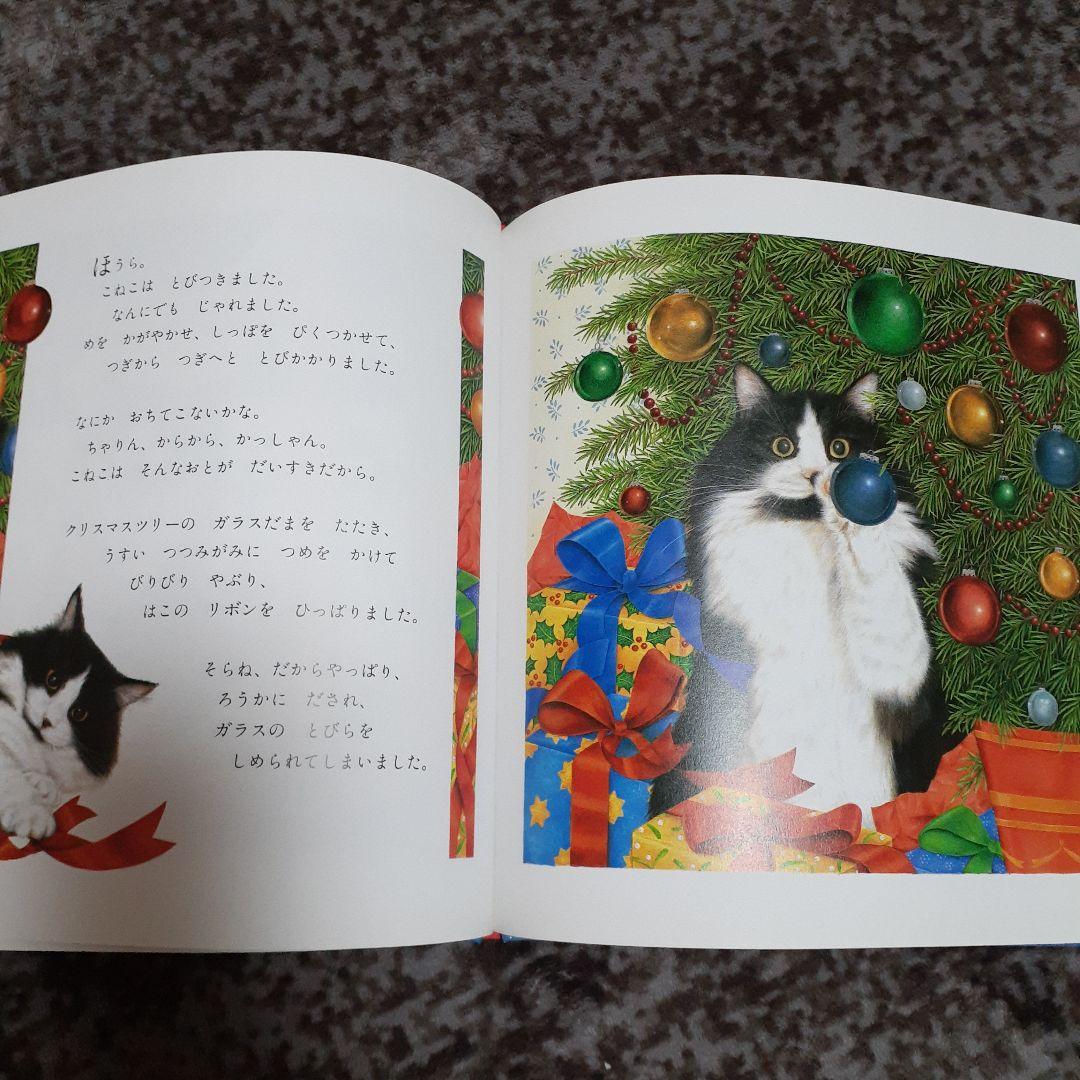 ほうら。
こねこは　とびつきました。
なんにでも　じゃれました。
めを　かがやかせ、しっぽを　ぴくつかせて、
つぎから　つぎへと　とびかかりました。
なにか　おちてこないかな。
ちゃりん、からから、かっしゃん。
こねこは　そんなおとが　だいすきだから。
クリスマスツリーの　ガラスだまを　たたき、
うすい　つつみがみに　つめを　かけて
びりびり　やぶり、
はこの　リボンを　ひっぱりました。
そらね、だからやっぱり、
ろうかに　だされ、
ガラスの　とびらを
しめられてしまいました。